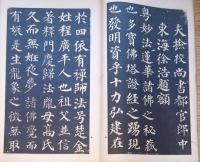 夫撿挍尚書都官郎中
東海徐浩題額
粵妙法蓮華諸佛之秘藏
也多寶佛塔證經之踴現
也發明資乎十力弘建在
於四依有禪師法号楚金
姓程廣平人也祖父並信
著釋門慶歸法胤母高氏
久而無妊夜夢諸佛覺而
有娠是生龍象之徵無取